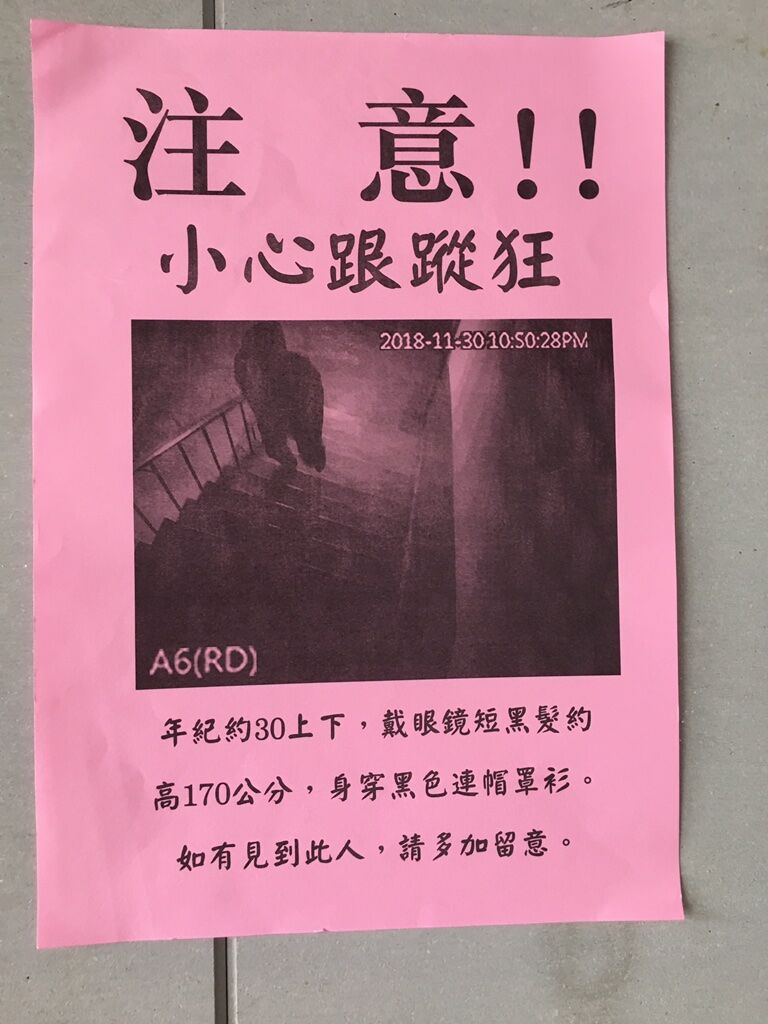 注 意!!
小心跟蹤狂
2018-11-30 10:50:28PM
A6(RD)
年紀約30上下,戴眼鏡短黑髮約
高170公分,身穿黑色連帽罩衫。
如有見到此人,請多加留意。